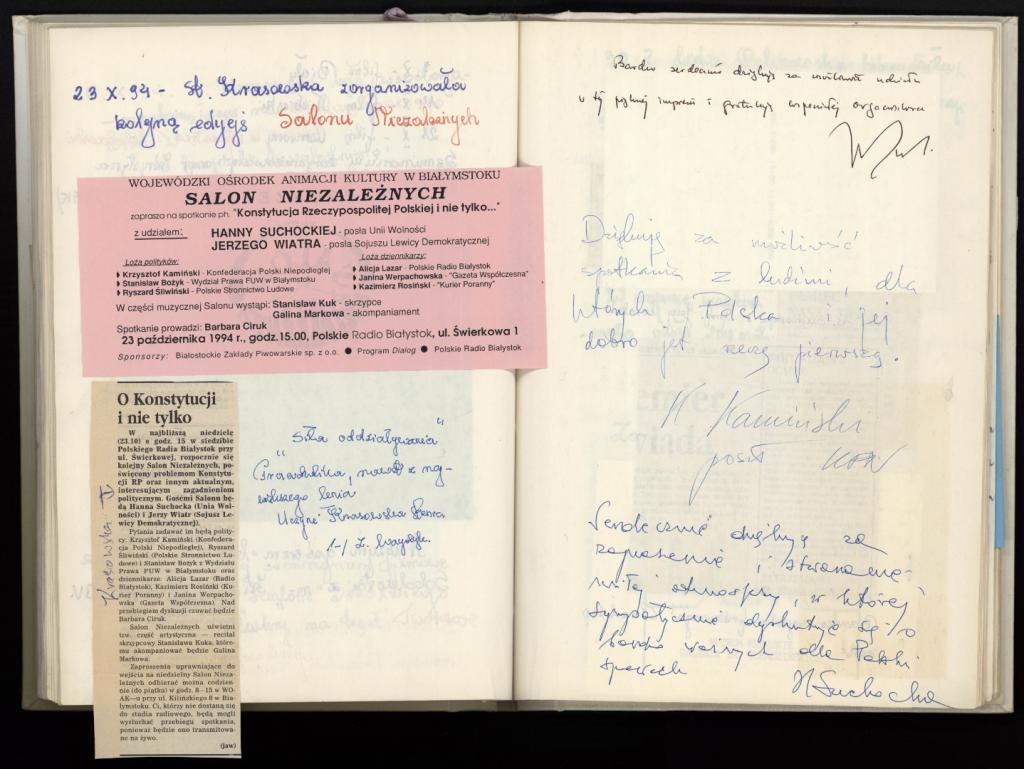 23 X. 94 - St. Krasowska zorganizowała
kolejną edycję Salonu Niezależnych
WOJEWÓDZKI OŚRODEK ANIMACJI KULTURY W BIAŁYMSTOKU
SALON NIEZALEŻNYCH
zaprasza na spotkanie ph. "Konstytucja Rzeczypospolitej Polskiej i nie tylko..."
z udziałem: HANNY SUCHOCKIEJ - posła Unii Wolności
JERZEGO WIATRA - posła Sojuszu Lewicy Demokratycznej
Loża polityków:
Krzysztof Kamiński - Konfederacja Polski Niepodległej
Stanisław Bożyk - Wydział Prawa FUW w Białymstoku
Ryszard Śliwiński - Polskie Stronnictwo Ludowe
Loża dziennikarzy:
Alicja Lazar - Polskie Radio Białystok
Janina Werpachowska - "Gazeta Współczesna"
Kazimierz Rosiński - "Kurier Poranny"
W części muzycznej Salonu wystąpi: Stanisław Kuk - skrzypce
Galina Markowa - akompaniament
Spotkanie prowadzi: Barbara Ciruk
23 października 1994 r., godz.15.00, Polskie Radio Białystok, ul. Świerkowa 1
Sponsorzy: Białostockie Zakłady Piwowarskie sp. z o.o. ● Program Dialog ● Polskie Radio Białystok
O Konstytucji
i nie tylko
W najbliższą niedzielę
(23.10) o godz. 15 w siedzibie
Polskiego Radia Białystok przy
ul. Świerkowej, rozpocznie się
kolejny Salon Niezależnych, po-
święcony problemom Konstytu-
cji RP oraz innym aktualnym,
interesującym zagadnieniom
politycznym. Gośćmi Salonu bę-
dą Hanna Suchocka (Unia Wol-
ności) i Jerzy Wiatr (Sojusz Le-
wicy Demokratycznej).
Pytania zadawać im będą polity-
cy: Krzysztof Kamiński (Konfedera-
cja Polski Niepodległej), Ryszard
Śliwiński (Polskie Stronnictwo Lu-
dowe) i Stanisław Bożyk z Wydziału
Prawa FUW w Białymstoku oraz
dziennikarze: Alicja Lazar (Radio
Białystok), Kazimierz Rosiński (Ku-
rier Poranny) i Janina Werpacho-
wska (Gazeta Współczesna). Nad
przebiegiem dyskusji czuwać będzie
Barbara Ciruk.
Salon Niezależnych uświetni
tzw. część artystyczna — recital
skrzypcowy Stanisława Kuka, które-
mu akompaniować będzie Galina
Markowa.
Zaproszenia uprawniające do
wejścia na niedzielny Salon Nieza-
leżnych odbierać można codzien-
nie (do piątku) w godz. 8—15 w WO-
AK—u przy ul. Kilińskiego 8 w Bia-
łymstoku. Ci, którzy nie dostaną się
do studia radiowego, będą mogli
wysłuchać przebiegu spotkania,
ponieważ będzie ono transmitowa-
ne na żywo.
(jaw)
Krasowska
"Siła oddziaływania"
nawet z naj-
Krasowska
Bardzo serdecznie dziękuję za możliwość udziału
w tej pięknej imprezie i gratuluję wspaniałej
Dziękuję za możliwość
spotkania z ludźmi, dla
których Polska i jej
dobro jest rzeczą pierwszą.
K Kamiński
poseł KPN
Serdecznie dziękuję za
zaproszenie i stworzenie
miłej atmosfery, w której
sympatycznie dyskutuje się o
bardzo ważnych dla Polski
sprawach
H Suchocka